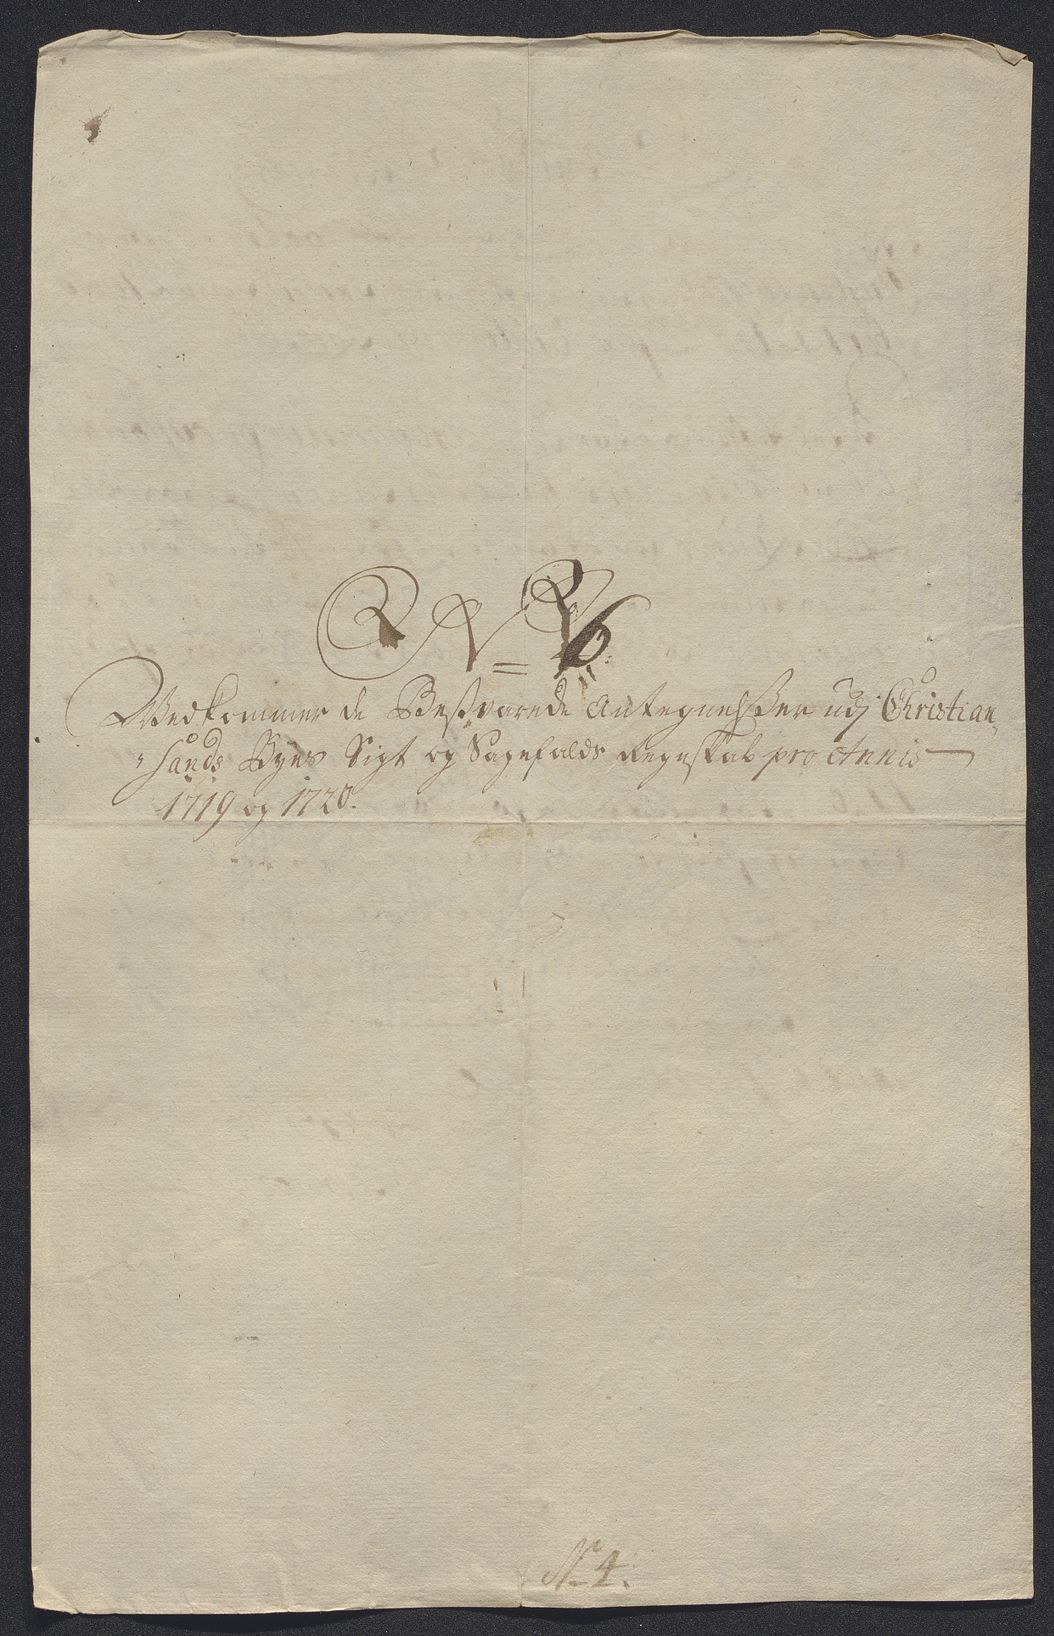 Vedkommer de Besvarede Antegnelsser udj Christian„
„sands Byes Sigt og Sagefalds Regnskab pro Annis
1719 og 1720.
N 4.